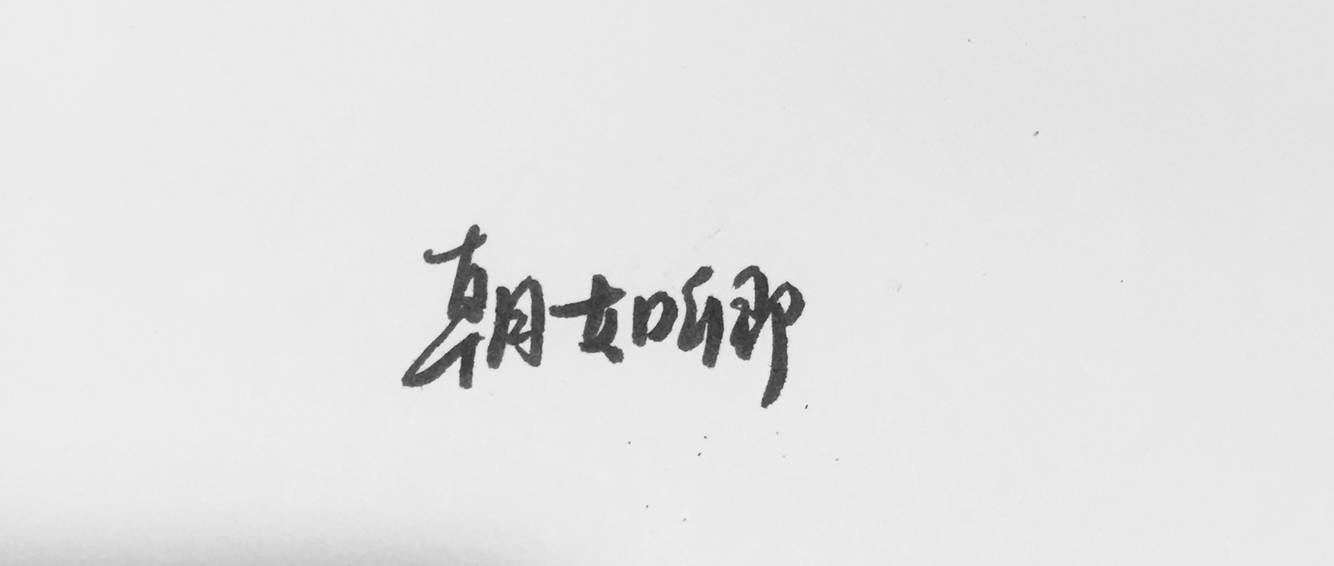 朝如卿